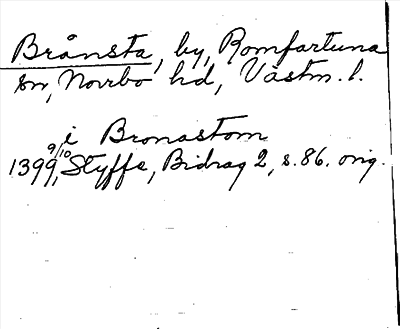 Brånsta, by, Romfartuna
sn, Norrbo hd, Västm. l.
i Bronastom
1399 9/10, Styffe, Bidrag 2, s. 86. orig.